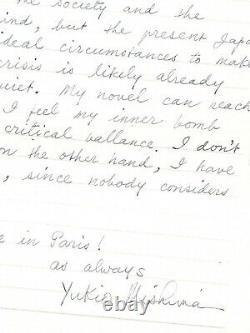 the society and the
ind, but the present Japa
deal circumstances to mak
crisis is likely already
uiet. My novel can reach
I feel my inner bomb
critical ballance. I don't
on the other hand, I have
, since nobody considers
e in Paris!
as always
Yukio Mishima
© ebay